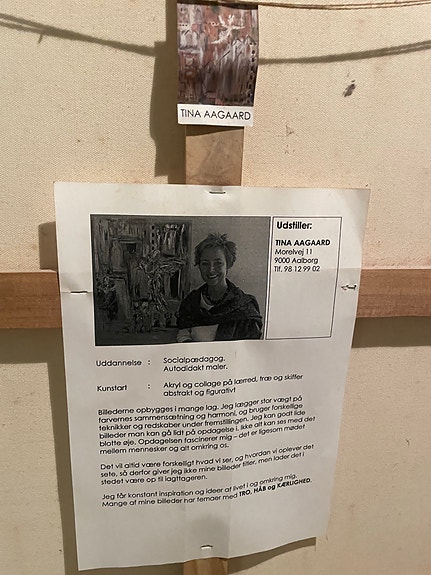 TINA AAGAARD
Udstiller:
TINA AAGAARD
Morelvej 11
9000 Aalborg
Tlf. 98 12 99 02
Uddannelse : Socialpædagog,
Autodidakt maler.
Kunstart : Akryl og collage på lærred, træ og skiffer
abstrakt og figurativt
Billederne opbygges i mange lag. Jeg lægger stor vægt på
farvernes sammensætning og harmoni, og bruger forskellige
teknikker og redskaber under fremstillingen. Jeg kan godt lide
billeder man kan gå lidt på opdagelse i, ikke alt kan ses med det
blotte øje. Opdagelsen fascinerer mig – det er ligesom mødet
mellem mennesker og alt omkring os.
Det vil altid være forskelligt hvad vi ser, og hvordan vi oplever det
sete, så derfor giver jeg ikke mine billeder titler, men lader det i
stedet være op til iagttageren.
Jeg får konstant inspiration og ideer af livet i og omkring mig.
Mange af mine billeder har temaer med TRO, HÅB og KÆRLIGHED.